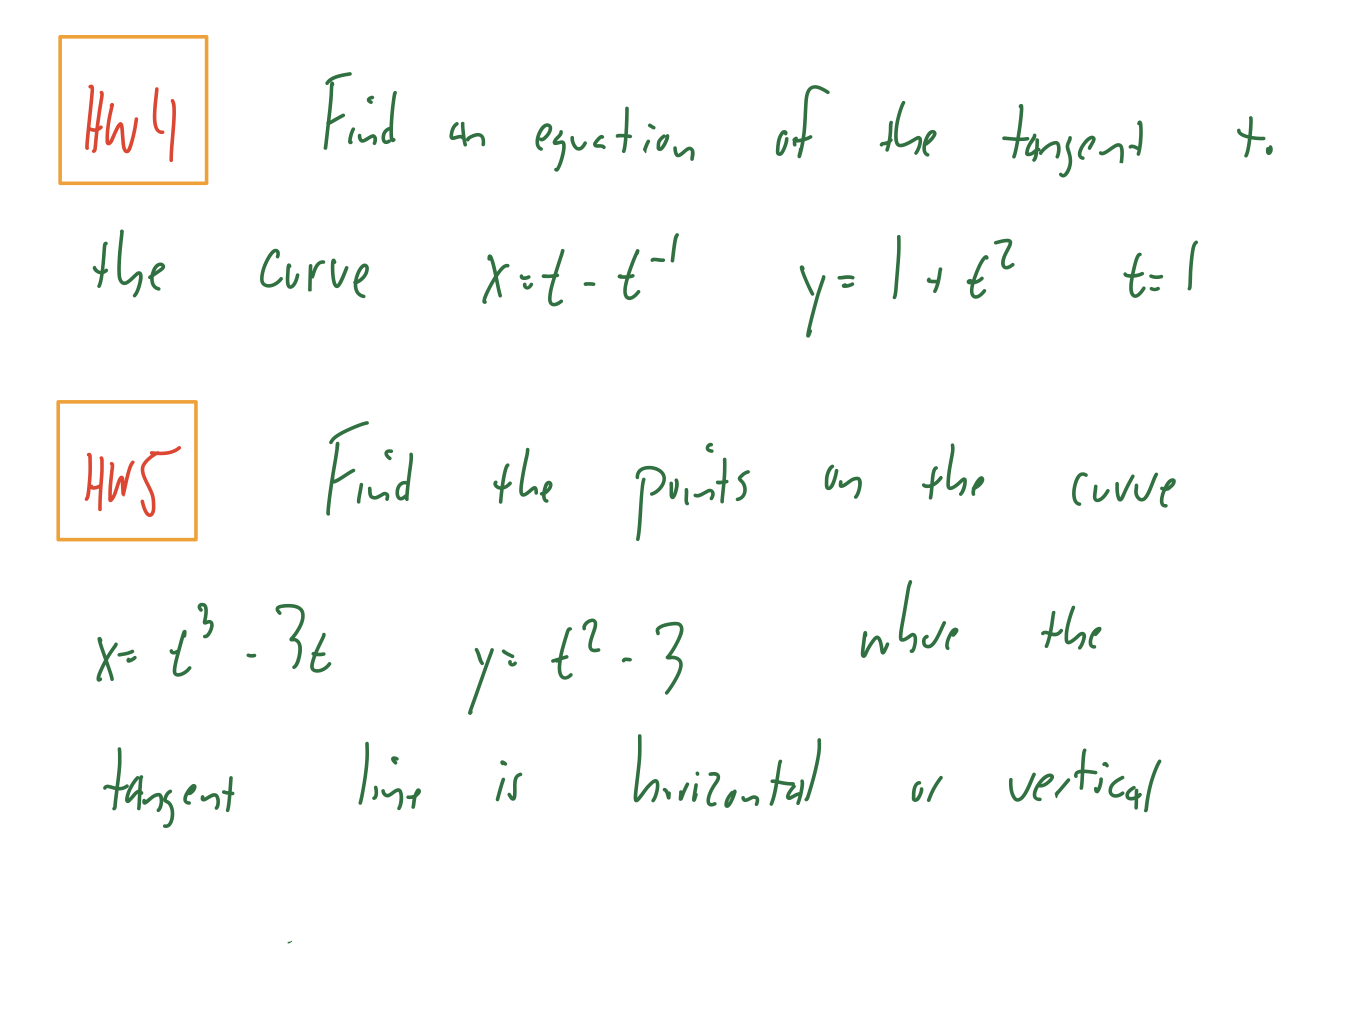 HW4 Find an equation of the tangent to
the curve x = t - t⁻¹ y = 1 + t² t = 1
HW5 Find the points on the curve
x = t³ - 3t y = t² - 3 where the
tangent line is horizontal or vertical